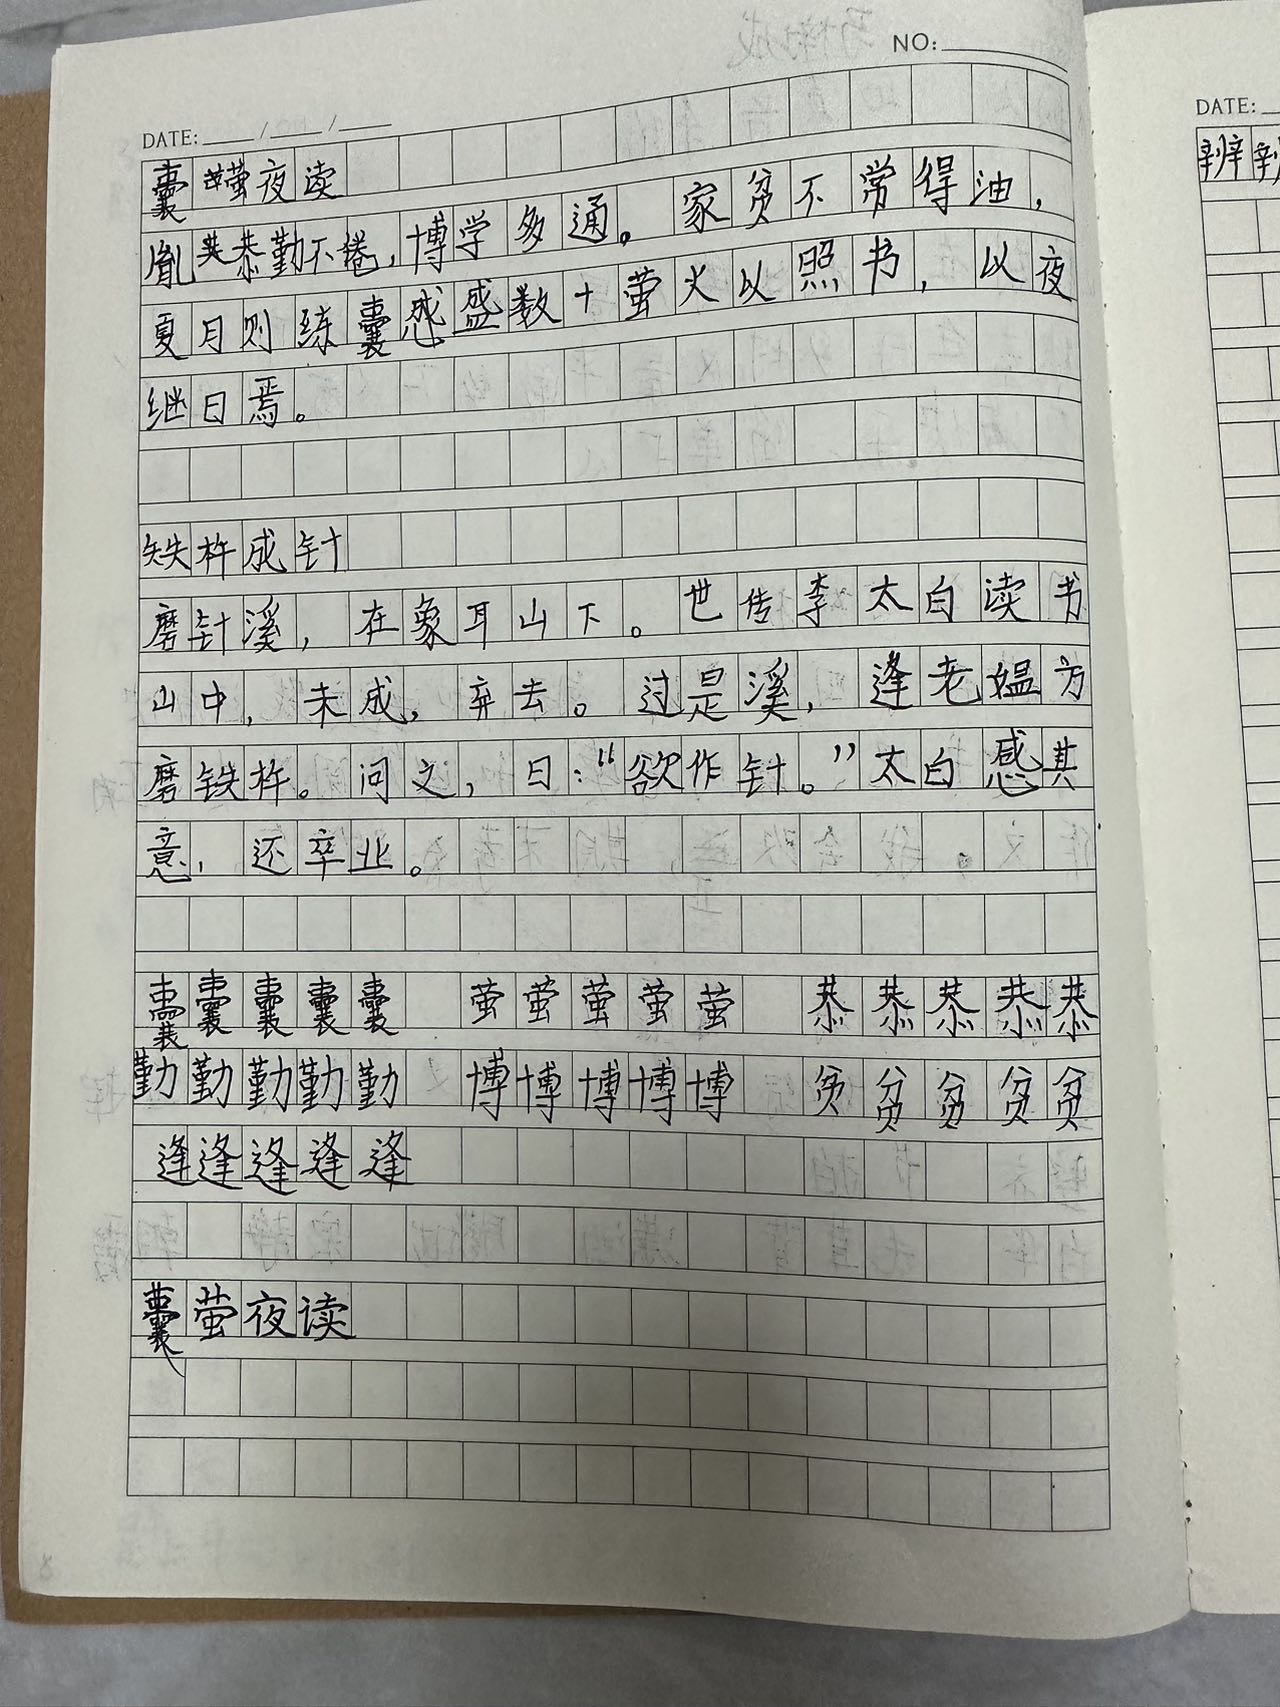 NO:
DATE: / /
囊萤夜读
胤恭勤不倦,博学多通。家贫不常得油,
夏月则练囊盛数十萤火以照书,以夜
继日焉。
铁杵成针
磨针溪,在象耳山下。世传李太白读书
山中,未成,弃去。过是溪,逢老媪方
磨铁杵。问之,曰:“欲作针。”太白感其
意,还卒业。
囊囊囊囊囊 萤萤萤萤萤 恭恭恭恭恭
勤勤勤勤勤 博博博博博 贫贫贫贫贫
逢逢逢逢逢
囊萤夜读
DATE:
辨